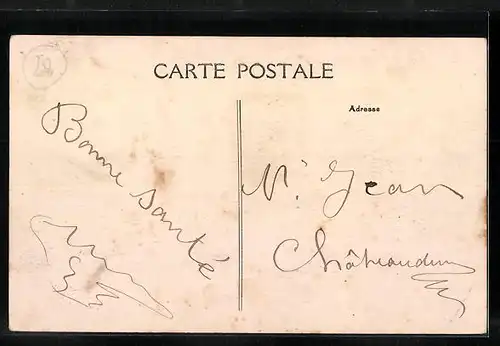 CARTE POSTALE
Adresse
Bonne santé
Mr Jean
Châteaudun